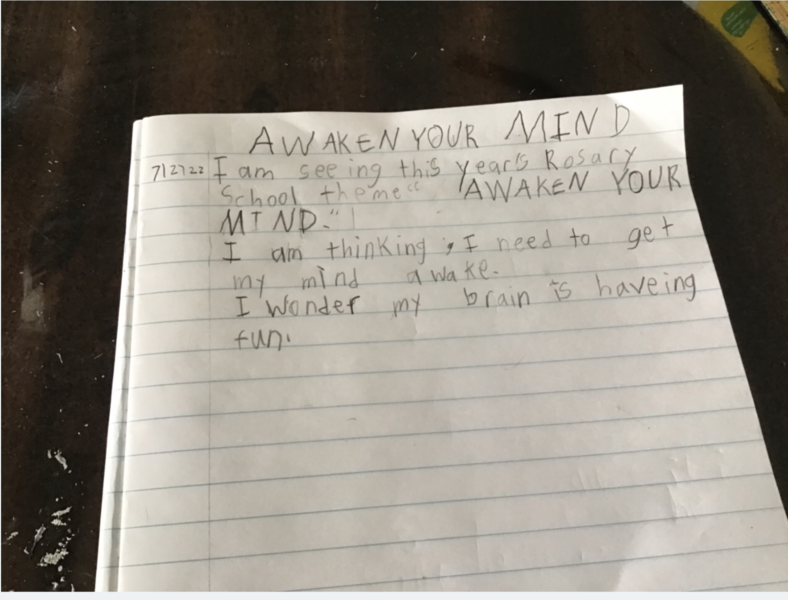 AWAKEN YOUR MIND
7/27/22 I am seeing this year's Rosary
School theme " "AWAKEN YOUR
MIND."
I am thinking , I need to get
my mind awake.
I wonder my brain is haveing
fun.